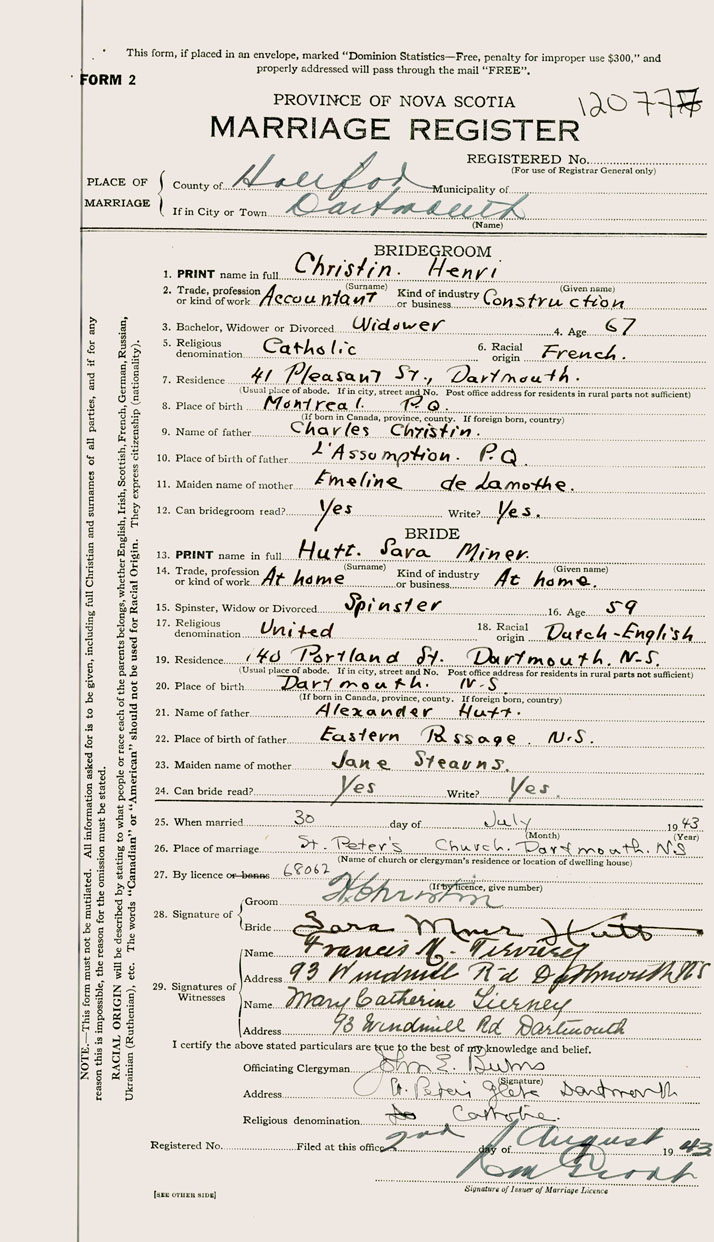 This form, if placed in an envelope, marked “Dominion Statistics—Free, penalty for improper use $300,” and
properly addressed will pass through the mail “FREE”.
FORM 2
PROVINCE OF NOVA SCOTIA
12077
MARRIAGE REGISTER
REGISTERED No.
(For use of Registrar General only)
PLACE OF MARRIAGE
County of Halifax Municipality of
If in City or Town Dartmouth
(Name)
BRIDEGROOM
1. PRINT name in full Christin. Henri
(Surname) (Given name)
2. Trade, profession or kind of work Accountant Kind of industry or business Construction
3. Bachelor, Widower or Divorced Widower 4. Age 67
5. Religious denomination Catholic 6. Racial origin French.
7. Residence 41 Pleasant St., Dartmouth.
(Usual place of abode. If in city, street and No. Post office address for residents in rural parts not sufficient)
8. Place of birth Montreal P.Q.
(If born in Canada, province, county. If foreign born, country)
9. Name of father Charles Christin.
10. Place of birth of father L'Assomption. P.Q.
11. Maiden name of mother Emeline de Lamothe.
12. Can bridegroom read? Yes Write? Yes.
BRIDE
13. PRINT name in full Hutt. Sara Miner.
(Surname) (Given name)
14. Trade, profession or kind of work At home Kind of industry or business At home.
15. Spinster, Widow or Divorced Spinster 16. Age 59
17. Religious denomination United 18. Racial origin Dutch-English
19. Residence 140 Portland St. Dartmouth. N-S.
(Usual place of abode. If in city, street and No. Post office address for residents in rural parts not sufficient)
20. Place of birth Dartmouth. N-S.
(If born in Canada, province, county. If foreign born, country)
21. Name of father Alexander Hutt.
22. Place of birth of father Eastern Passage. N.S.
23. Maiden name of mother Jane Stearns.
24. Can bride read? Yes Write? Yes.
25. When married 30 day of July 1943
(Month) (Year)
26. Place of marriage St. Peter's Church. Dartmouth. NS
(Name of church or clergyman's residence or location of dwelling house)
27. By licence or banns 68062
(If by licence, give number)
28. Signature of
Groom H Christin
Bride Sara Miner Hutt
29. Signatures of Witnesses
Name Francis
Address 93 Windmill Rd Dartmouth NS
Name Mary Catherine Tierney
Address 93 Windmill Rd Dartmouth
I certify the above stated particulars are true to the best of my knowledge and belief.
Officiating Clergyman John E. Burns
(Signature)
Address St. Peter's Glebe Dartmouth
Religious denomination Catholic.
Registered No. Filed at this office 2nd day of August 1943
Signature of Issuer of Marriage Licence
[SEE OTHER SIDE]
NOTE.—This form must not be mutilated. All information asked for is to be given, including full Christian and surnames of all parties, and if for any
reason this is impossible, the reason for the omission must be stated.
RACIAL ORIGIN will be described by stating to what people or race each of the parents belongs, whether English, Irish, Scottish, French, German, Russian,
Ukrainian (Ruthenian), etc. The words “Canadian” or “American” should not be used for Racial Origin. They express citizenship (nationality).